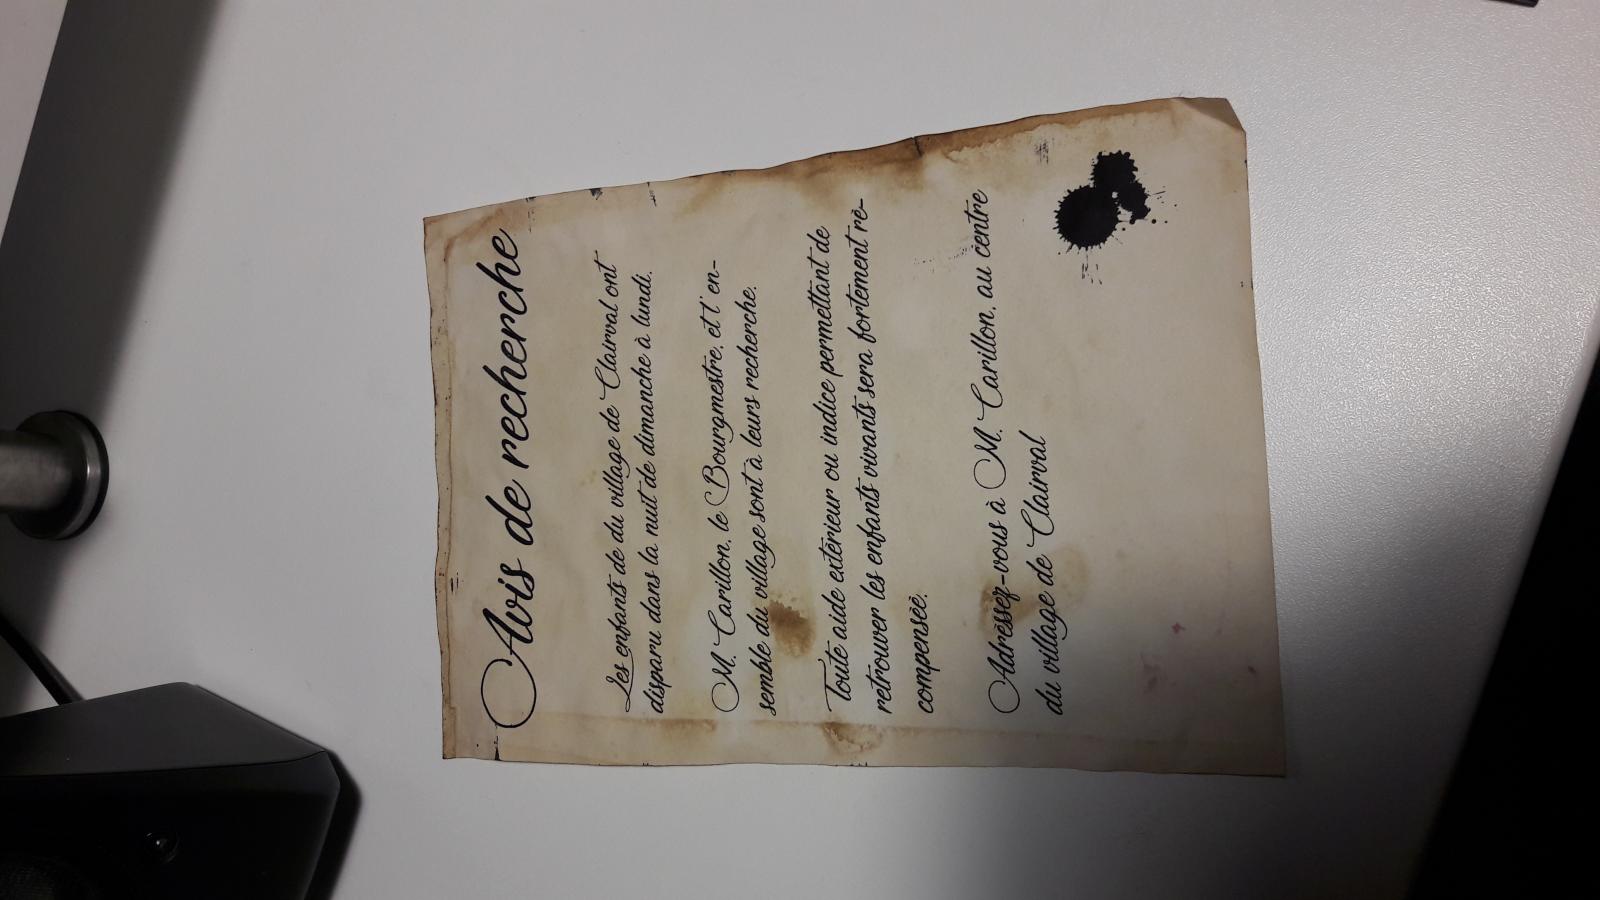 Avis de recherche
Les enfants de du village de Clairval ont
disparu dans la nuit de dimanche à lundi.
M. Carillon, le Bourgmestre, et l'en-
semble du village sont à leurs recherche.
Toute aide extérieur ou indice permettant de
retrouver les enfants vivants sera fortement ré-
compensée.
Adressez-vous à M. Carillon, au centre
du village de Clairval